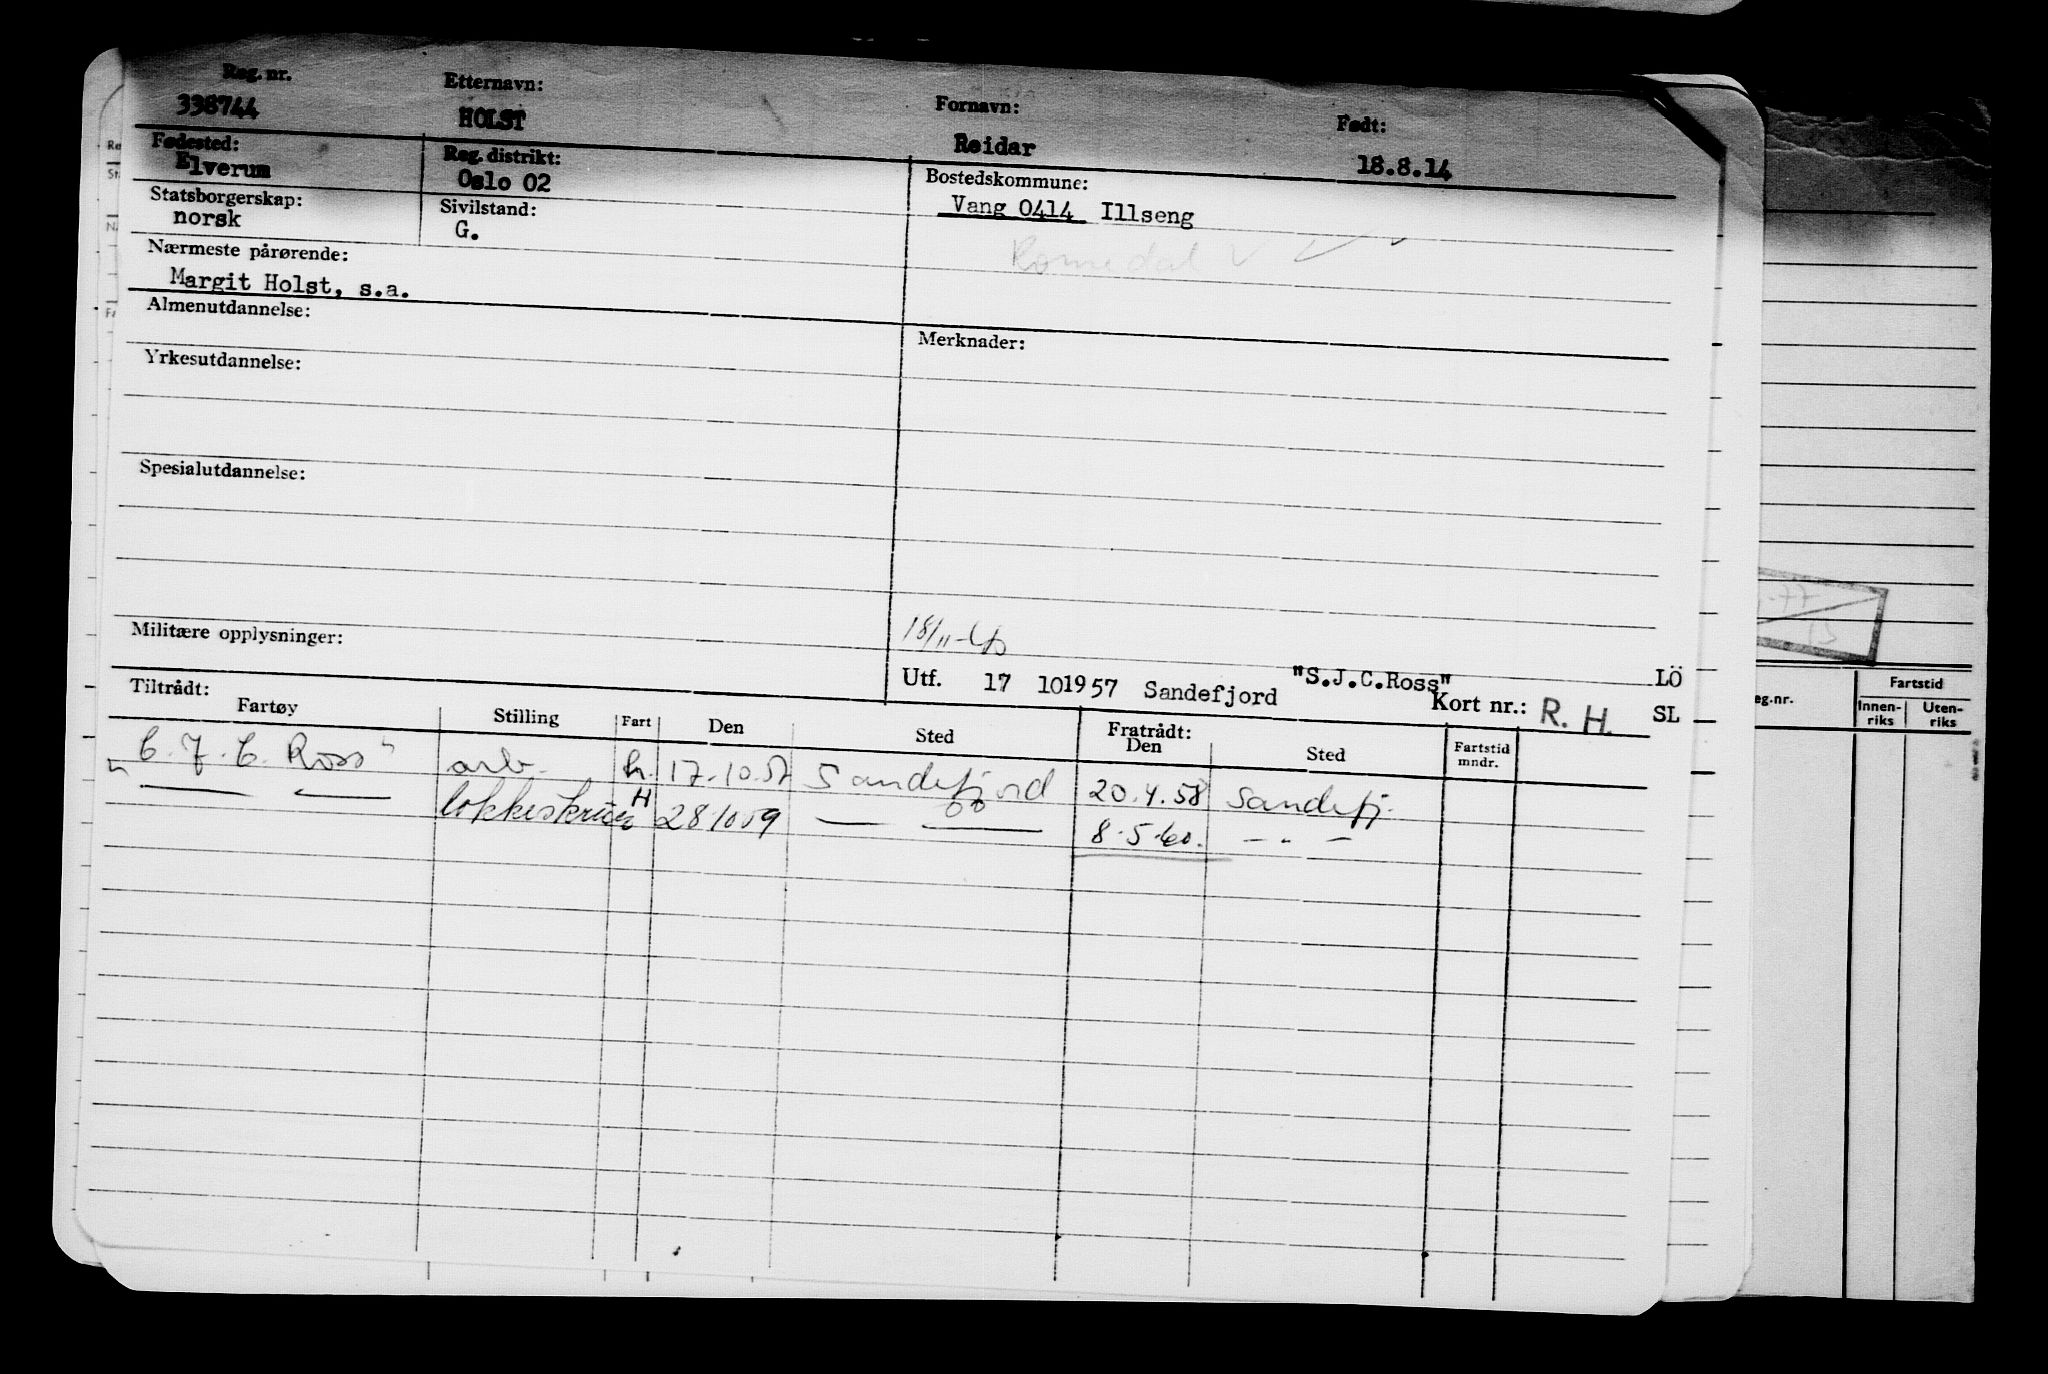 Reg. nr. Etternavn: Fornavn: Født:
338744 HOLST Reidar 18.8.14
Fødested: Reg. distrikt: Bostedskommune:
Elverum Oslo 02 Vang 0414 Illseng
Statsborgerskap: Sivilstand:
norsk G. Romedal
Nærmeste pårørende:
Margit Holst, s.a.
Almenutdannelse: Merknader:
Yrkesutdannelse:
Spesialutdannelse:
Militære opplysninger:
Utf. 17 10 1957 Sandefjord "S.J.C.Ross" LÖ
Kort nr.: R. H. SL
Tiltrådt: Fratrådt:
Fartøy Stilling Fart Den Sted Den Sted Fartstid mndr.
C. J. C. Ross" arb. h. 17.10.57 Sandefjord 20.4.58 Sandefj.
" — — H 28 10 59 — — 8.5.60. — " —
eg.nr. Fartstid
Innen-riks Uten-riks